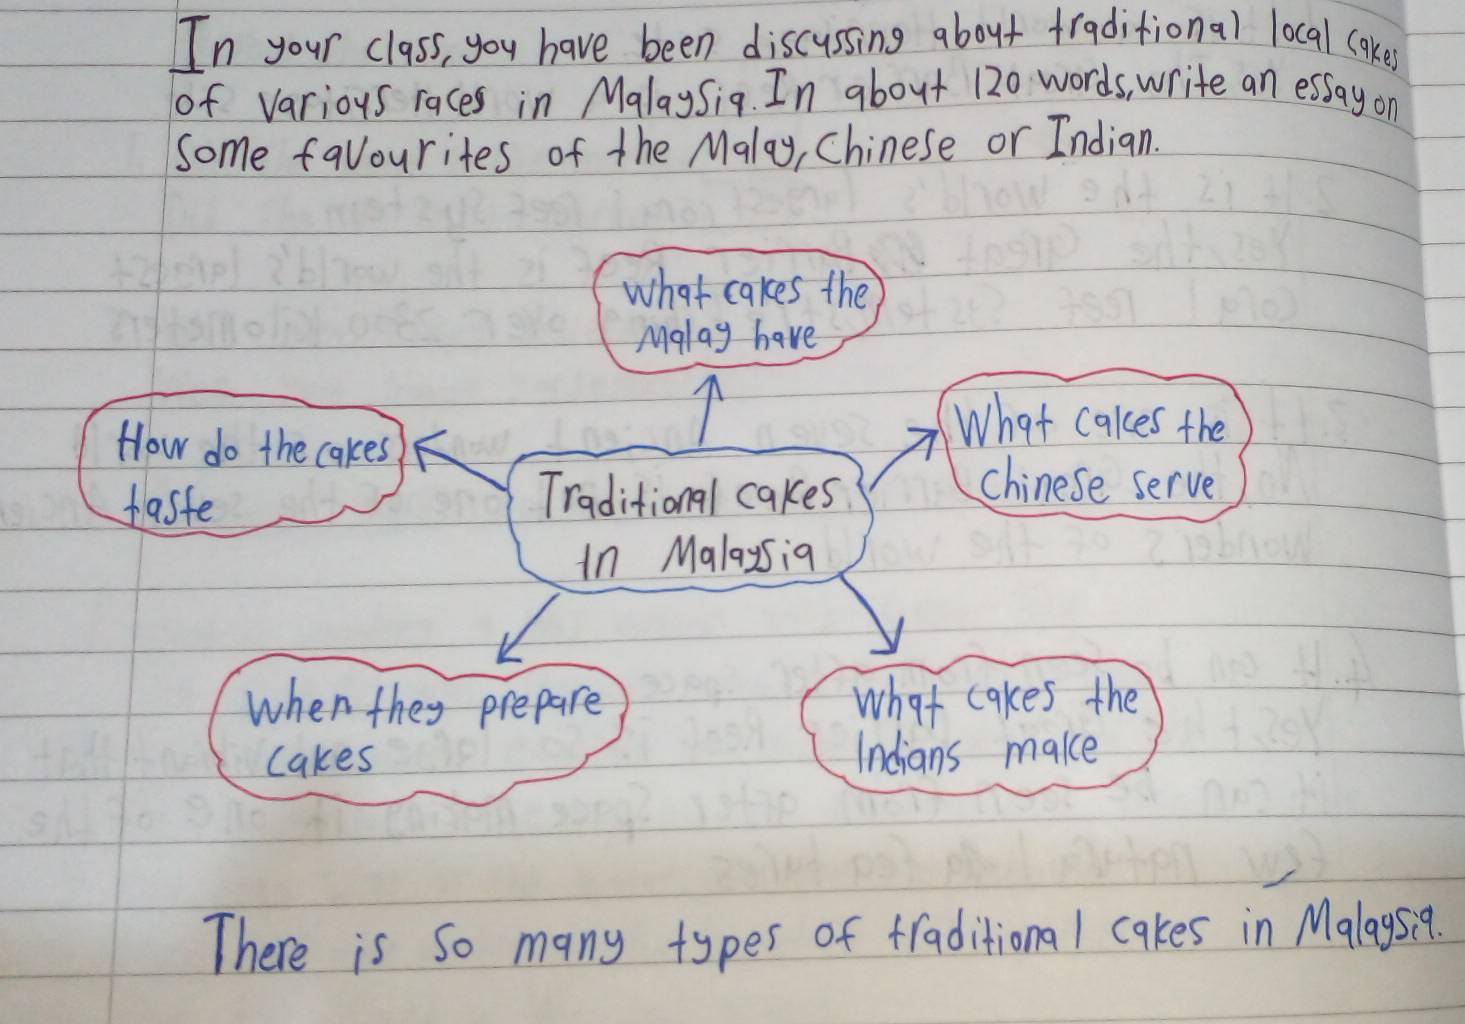 In your class, you have been discussing about traditional local cakes
of various races in Malaysia. In about 120 words, write an essay on
some favourites of the Malay, Chinese or Indian.
What cakes the
Malay have
How do the cakes
taste
What cakes the
Chinese serve
Traditional cakes
in Malaysia
When they prepare
cakes
What cakes the
Indians make
There is so many types of traditional cakes in Malaysia.